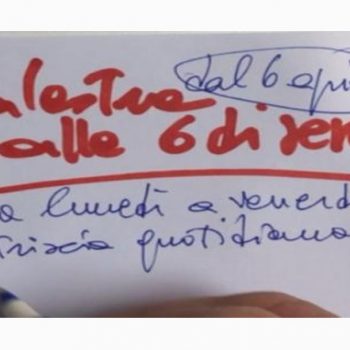 dal 6 apri
alestra
alle 6 di ser
a lunedì a venerd
triscia quotidiana